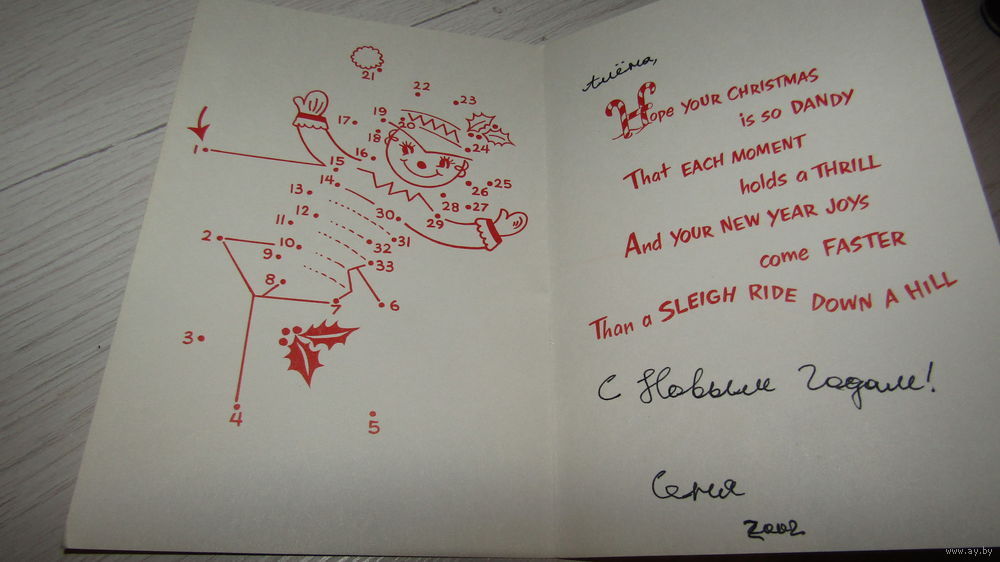 21
22
23
19
20
17
18
24
1
15
16
14
25
26
13
28
27
12
30
29
11
31
2
10
32
9
33
8
6
7
3
4
5
Алёна,
Hope YOUR CHRISTMAS
is so DANDY
That EACH MOMENT
holds a THRILL
And YOUR NEW YEAR JOYS
come FASTER
Than a SLEIGH RIDE DOWN A HILL
С Новым Годом!
Сеня
2002
www.ay.by